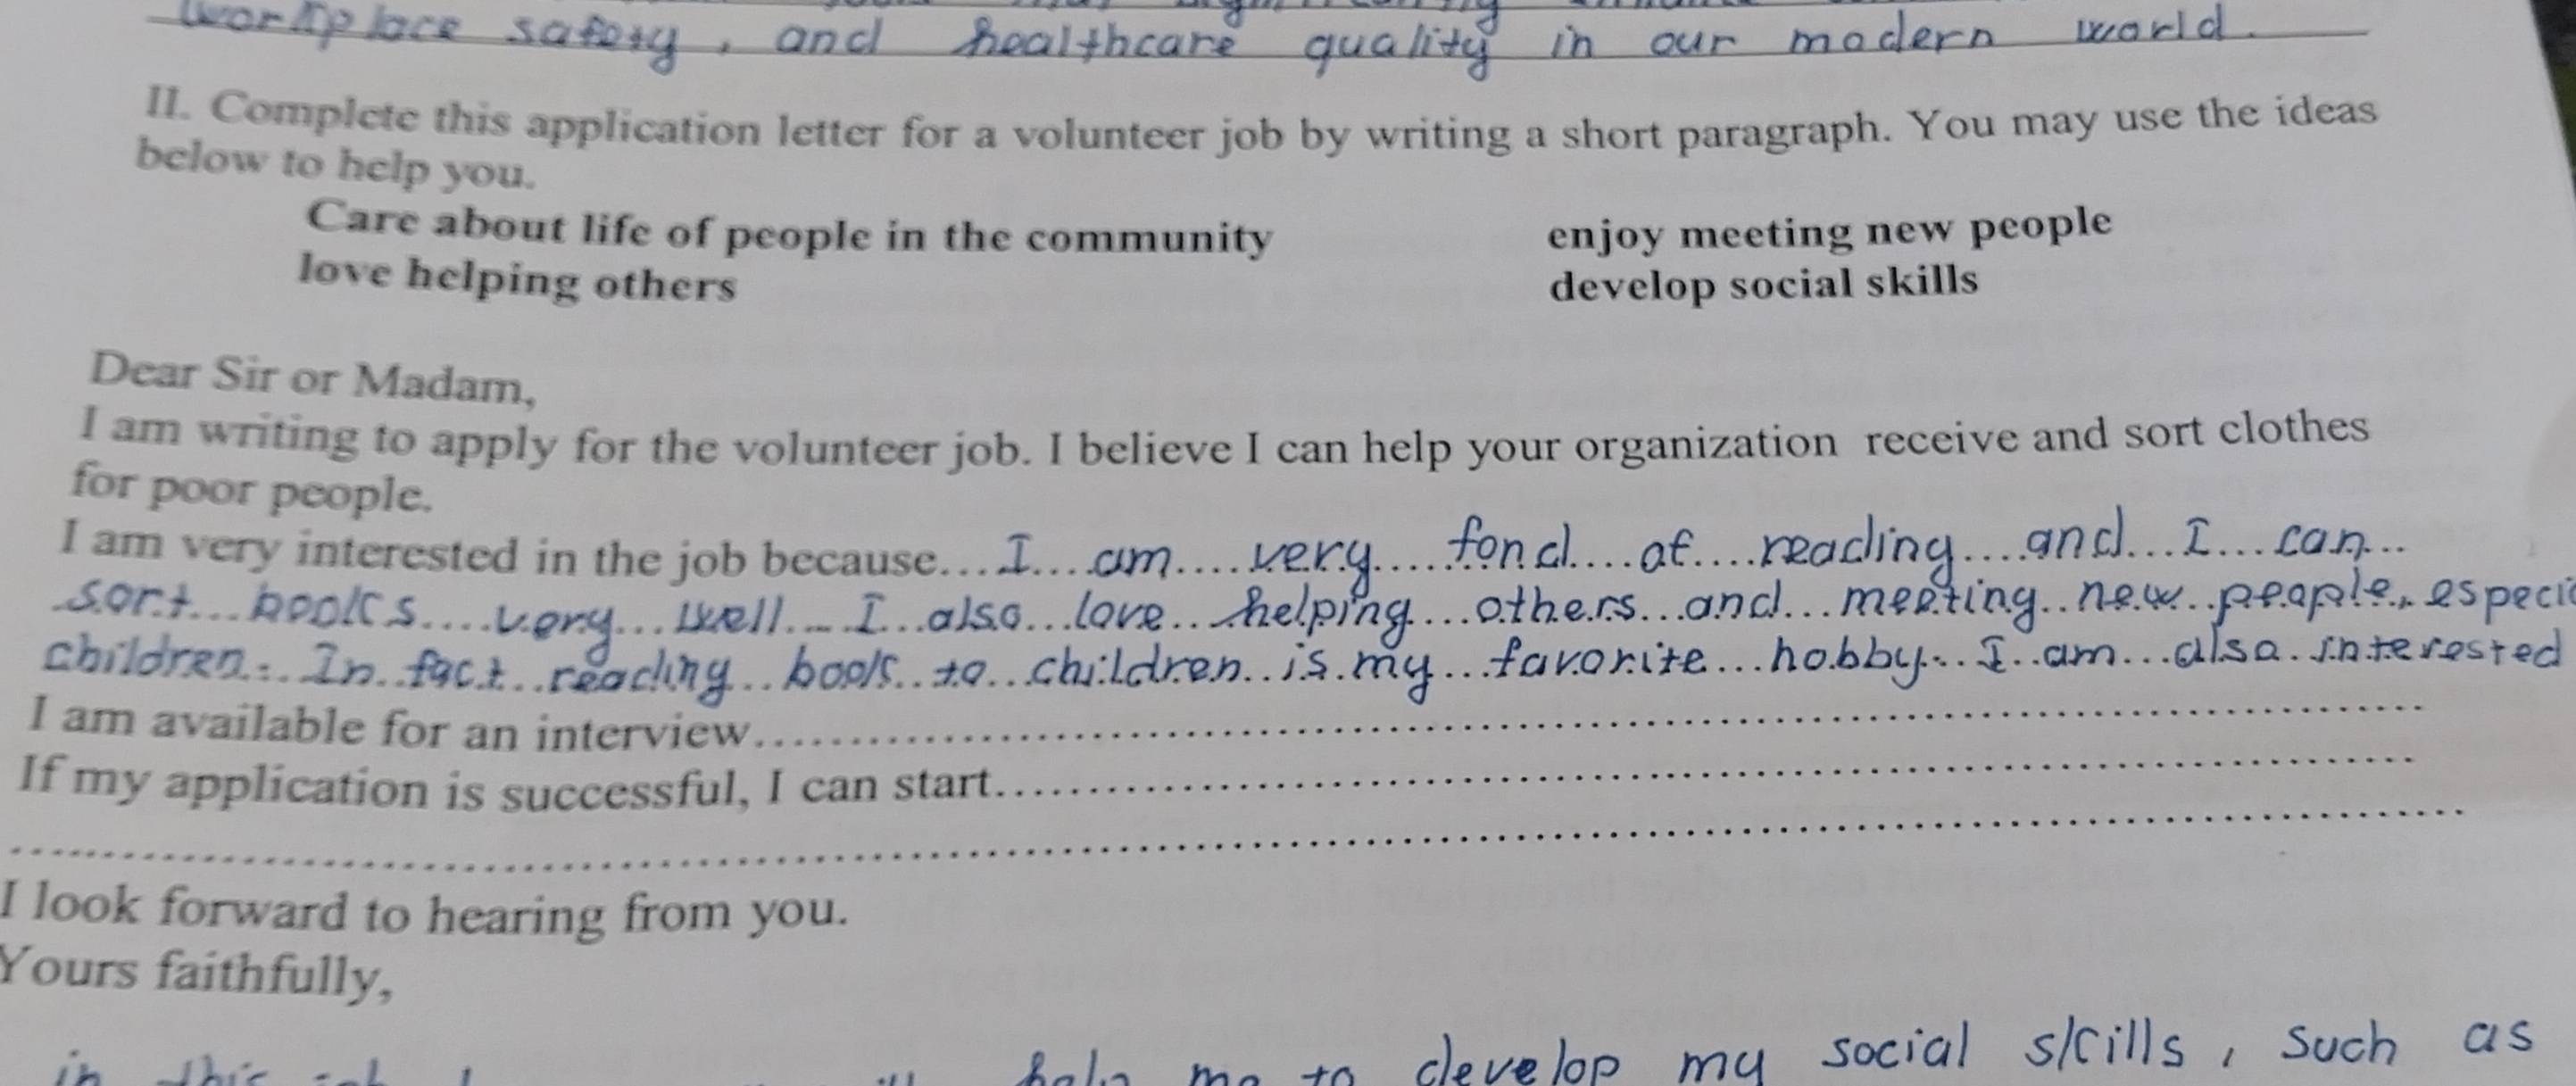 workplace safety, and healthcare quality in our modern world.
II. Complete this application letter for a volunteer job by writing a short paragraph. You may use the ideas
below to help you.
Care about life of people in the community enjoy meeting new people
love helping others develop social skills
Dear Sir or Madam,
I am writing to apply for the volunteer job. I believe I can help your organization receive and sort clothes
for poor people.
I am very interested in the job because...I....am....very.....fond....of....reading....and...I...can...
sort...books....very...well...I...also...love...helping...others...and...meeting..new..people,
children...In..fact..reading..book..to...children..is.my...favorite...hobby...I..am...also.interested
I am available for an interview...
If my application is successful, I can start...
I look forward to hearing from you.
Yours faithfully,
in this me to develop my social skills, such as